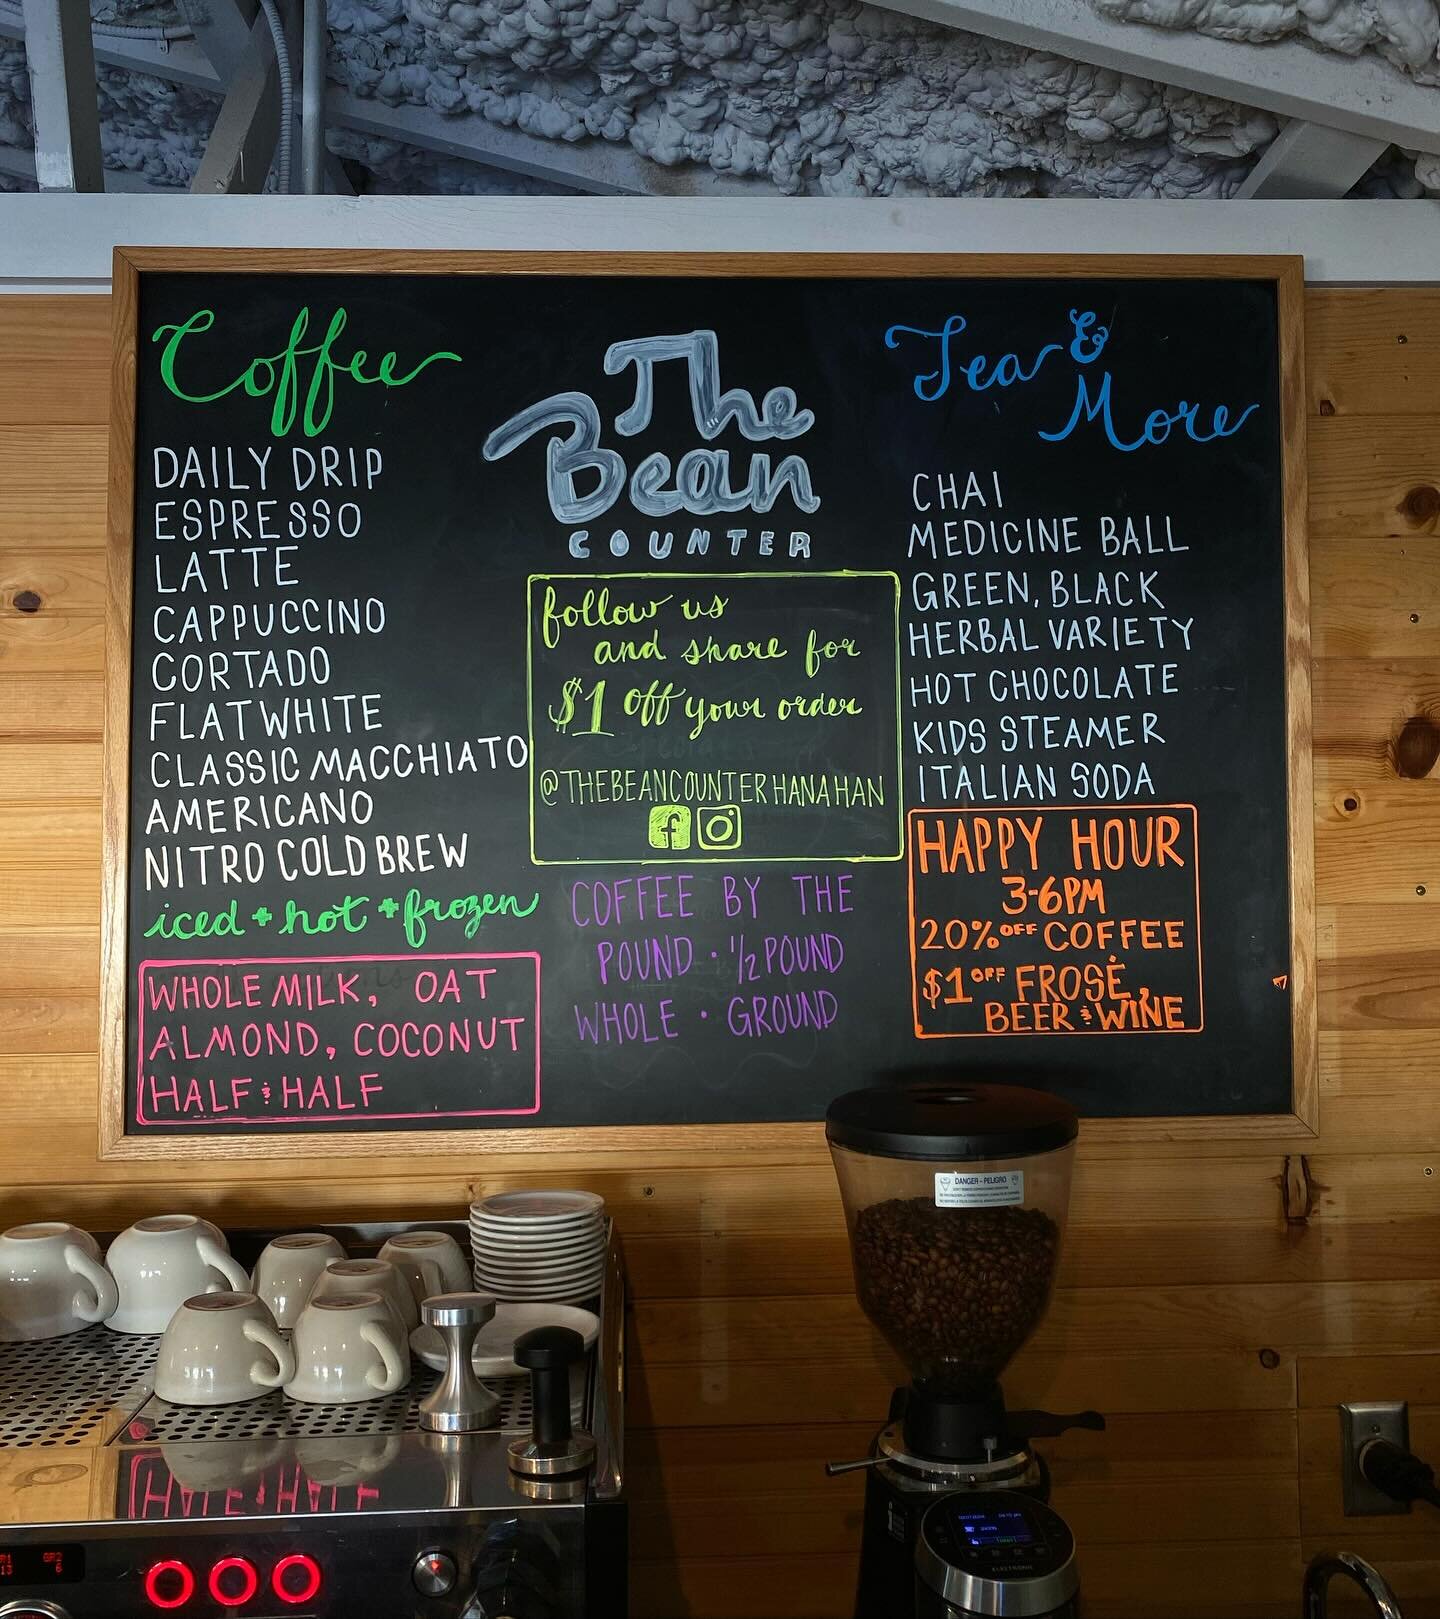 Coffee
DAILY DRIP
ESPRESSO
LATTE
CAPPUCCINO
CORTADO
FLAT WHITE
CLASSIC MACCHIATO
AMERICANO
NITRO COLD BREW
iced + hot + frozen
WHOLE MILK, OAT
ALMOND, COCONUT
HALF & HALF
The
Bean
COUNTER
follow us
and share for
$1 off your order
@THEBEANCOUNTERHANAHAN
f
COFFEE BY THE
POUND · 1/2 POUND
WHOLE · GROUND
Tea &
More
CHAI
MEDICINE BALL
GREEN, BLACK
HERBAL VARIETY
HOT CHOCOLATE
KIDS STEAMER
ITALIAN SODA
HAPPY HOUR
3-6PM
20% OFF COFFEE
$1 OFF FROSÉ,
BEER & WINE
DANGER - PELIGRO
HALF & HALF
GR2
13 6